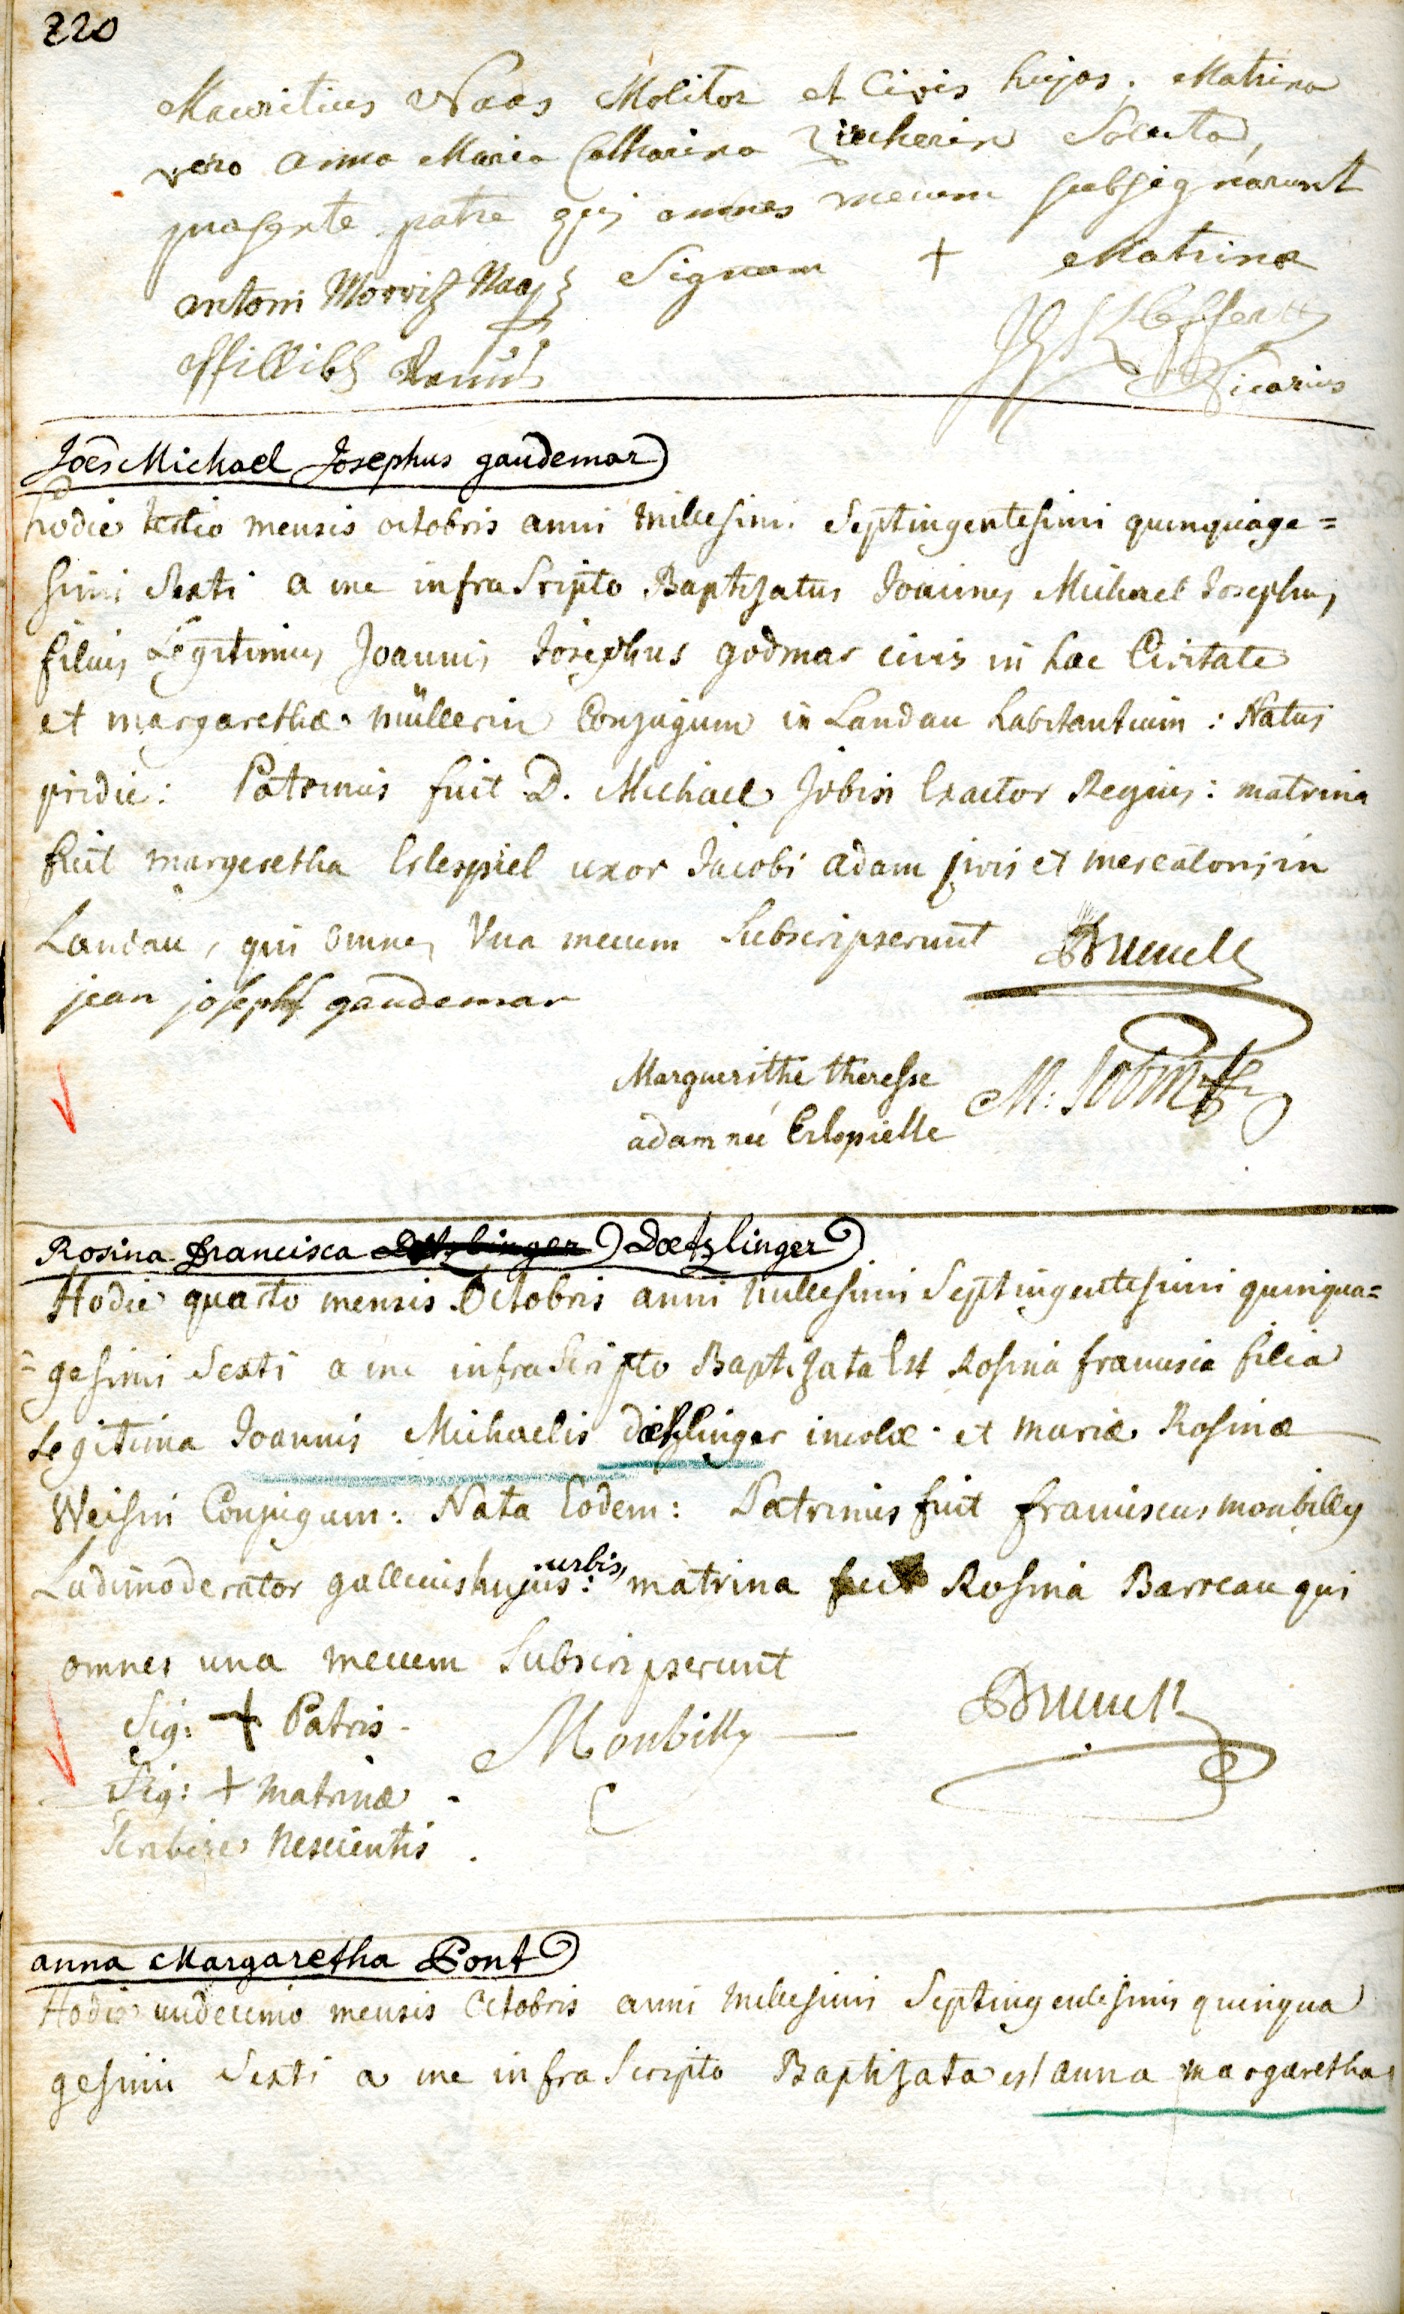 220
Mauritius Naas Molitor et Civis hujas. Matrina
vero anna Maria Catharina Zircherin Soluta,
præsente patre qui omnes mecum subsignarunt
antoni Morritz Naas Signum + Matrinæ
Vicarius
Joês Michael Josephus gaudemar
hodie tertio mensis octobris anni millesimi Septingentesimi quinquage=
simi Sexti a me infra Scripto Baptizatus Joannes Michael Josephus
filius Legitimus Joannis Josephus godmar civis in hac Civitate
et margarethæ müllerin Conjugum in Landau habitantium : Natus
pridie: Patrinus fuit D. Michael Jobin Exactor Regius: matrina
fuit margeretha Erlespiel uxor Jacobi adam civis et mercatoris in
Landau, qui omnes Una mecum Subscripserunt
jean joseph gaudemar
Marguerithe theresse M: Jobin
adam née Erlspielle
Rosina Francisca Doetzlinger
Hodie quarto mensis Octobris anni millesimi Septingentesimi quinqua=
=gesimi Sexti a me infra Scripto Baptizata Est Rosina francisca filia
Legitima Joannis Michaelis dietzlinger incolæ et mariæ Rosinæ
Weisin Conjugum: Nata Eodem: Patrinus fuit franciscus monbilly
Ludimoderator gallicus hujus urbis: matrina fuit Rosina Barreau qui
omnes una mecum Subscripserunt
Sig: + Patris Monbilly
Sig: + matrinæ
Scribere Nescientis
anna Margaretha Pont
Hodie undecimo mensis Octobris anni millesimi Septingentesimi quinqua
gesimi Sexti a me infra Scripto Baptizata est anna margaretha